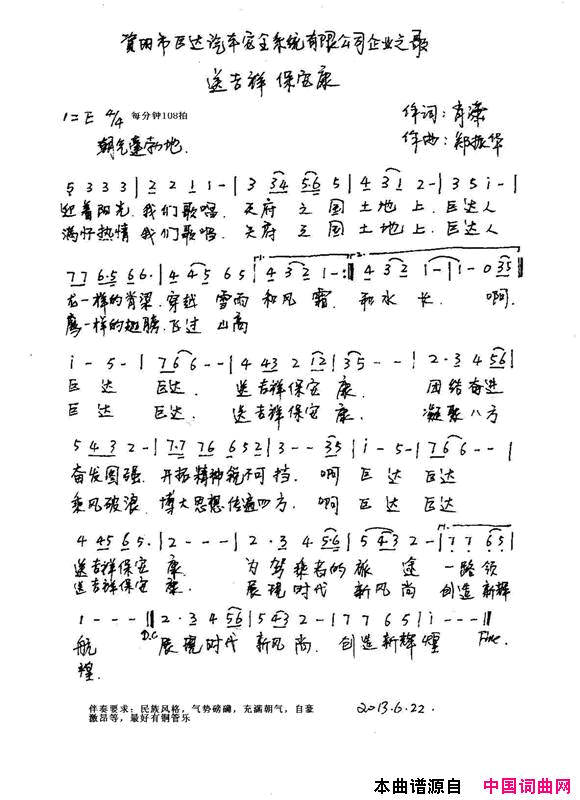 资阳市巨达汽车安全系统有限公司企业之歌
送吉祥 保安康
1=E 4/4 每分钟108拍
作词:肖潆
朝气蓬勃地.
作曲:郑振华
5 3 3 3 | 2 2 1 1 - | 3 34 56 5 | 4 31 2 - | 3 5 i - |
迎着阳光.我们歌唱.天府之国土地上.巨达人
满怀热情我们歌唱.天府之国土地上.巨达人
77 6·5 66· | 4 45 65 | 4 32 1 - :‖ 4 32 1 - | 1 - 0 35 |
龙一样的脊梁.穿越雪雨和风霜.和水长.啊.
鹰一样的翅膀.飞过山高
i - 5 - | 76 6 - - | 4 43 2 12 | 35 - - | 2·3 4 56 |
巨达 巨达. 送吉祥保安康. 团结奋进
巨达 巨达. 送吉祥保安康. 凝聚八方
5 4 3 2 - | 7·7 76 652 | 3 - - 35 | i - 5 - | 76 6 - - |
奋发图强.开拓精神锐不可挡.啊巨达 巨达
乘风破浪.博大思想传遍四方.啊巨达 巨达
4 45 65. | 2 - - - | 2·3 4 5·6 | 5 43 2 - | 77 65 |
送吉祥保安康. 为驾乘者的旅途一路领
送吉祥保安康. 展现时代新风尚创造新辉
1 - - - ‖ 2·3 4 56 | 5 43 2 - | 7 7 6 5 | i - - - ‖
航 D.C 展现时代新风尚.创造新辉煌 Fine.
煌.
伴奏要求:民族风格,气势磅礴,充满朝气,自豪
激昂等,最好有铜管乐
2013.6.22.
本曲谱源自 中国词曲网